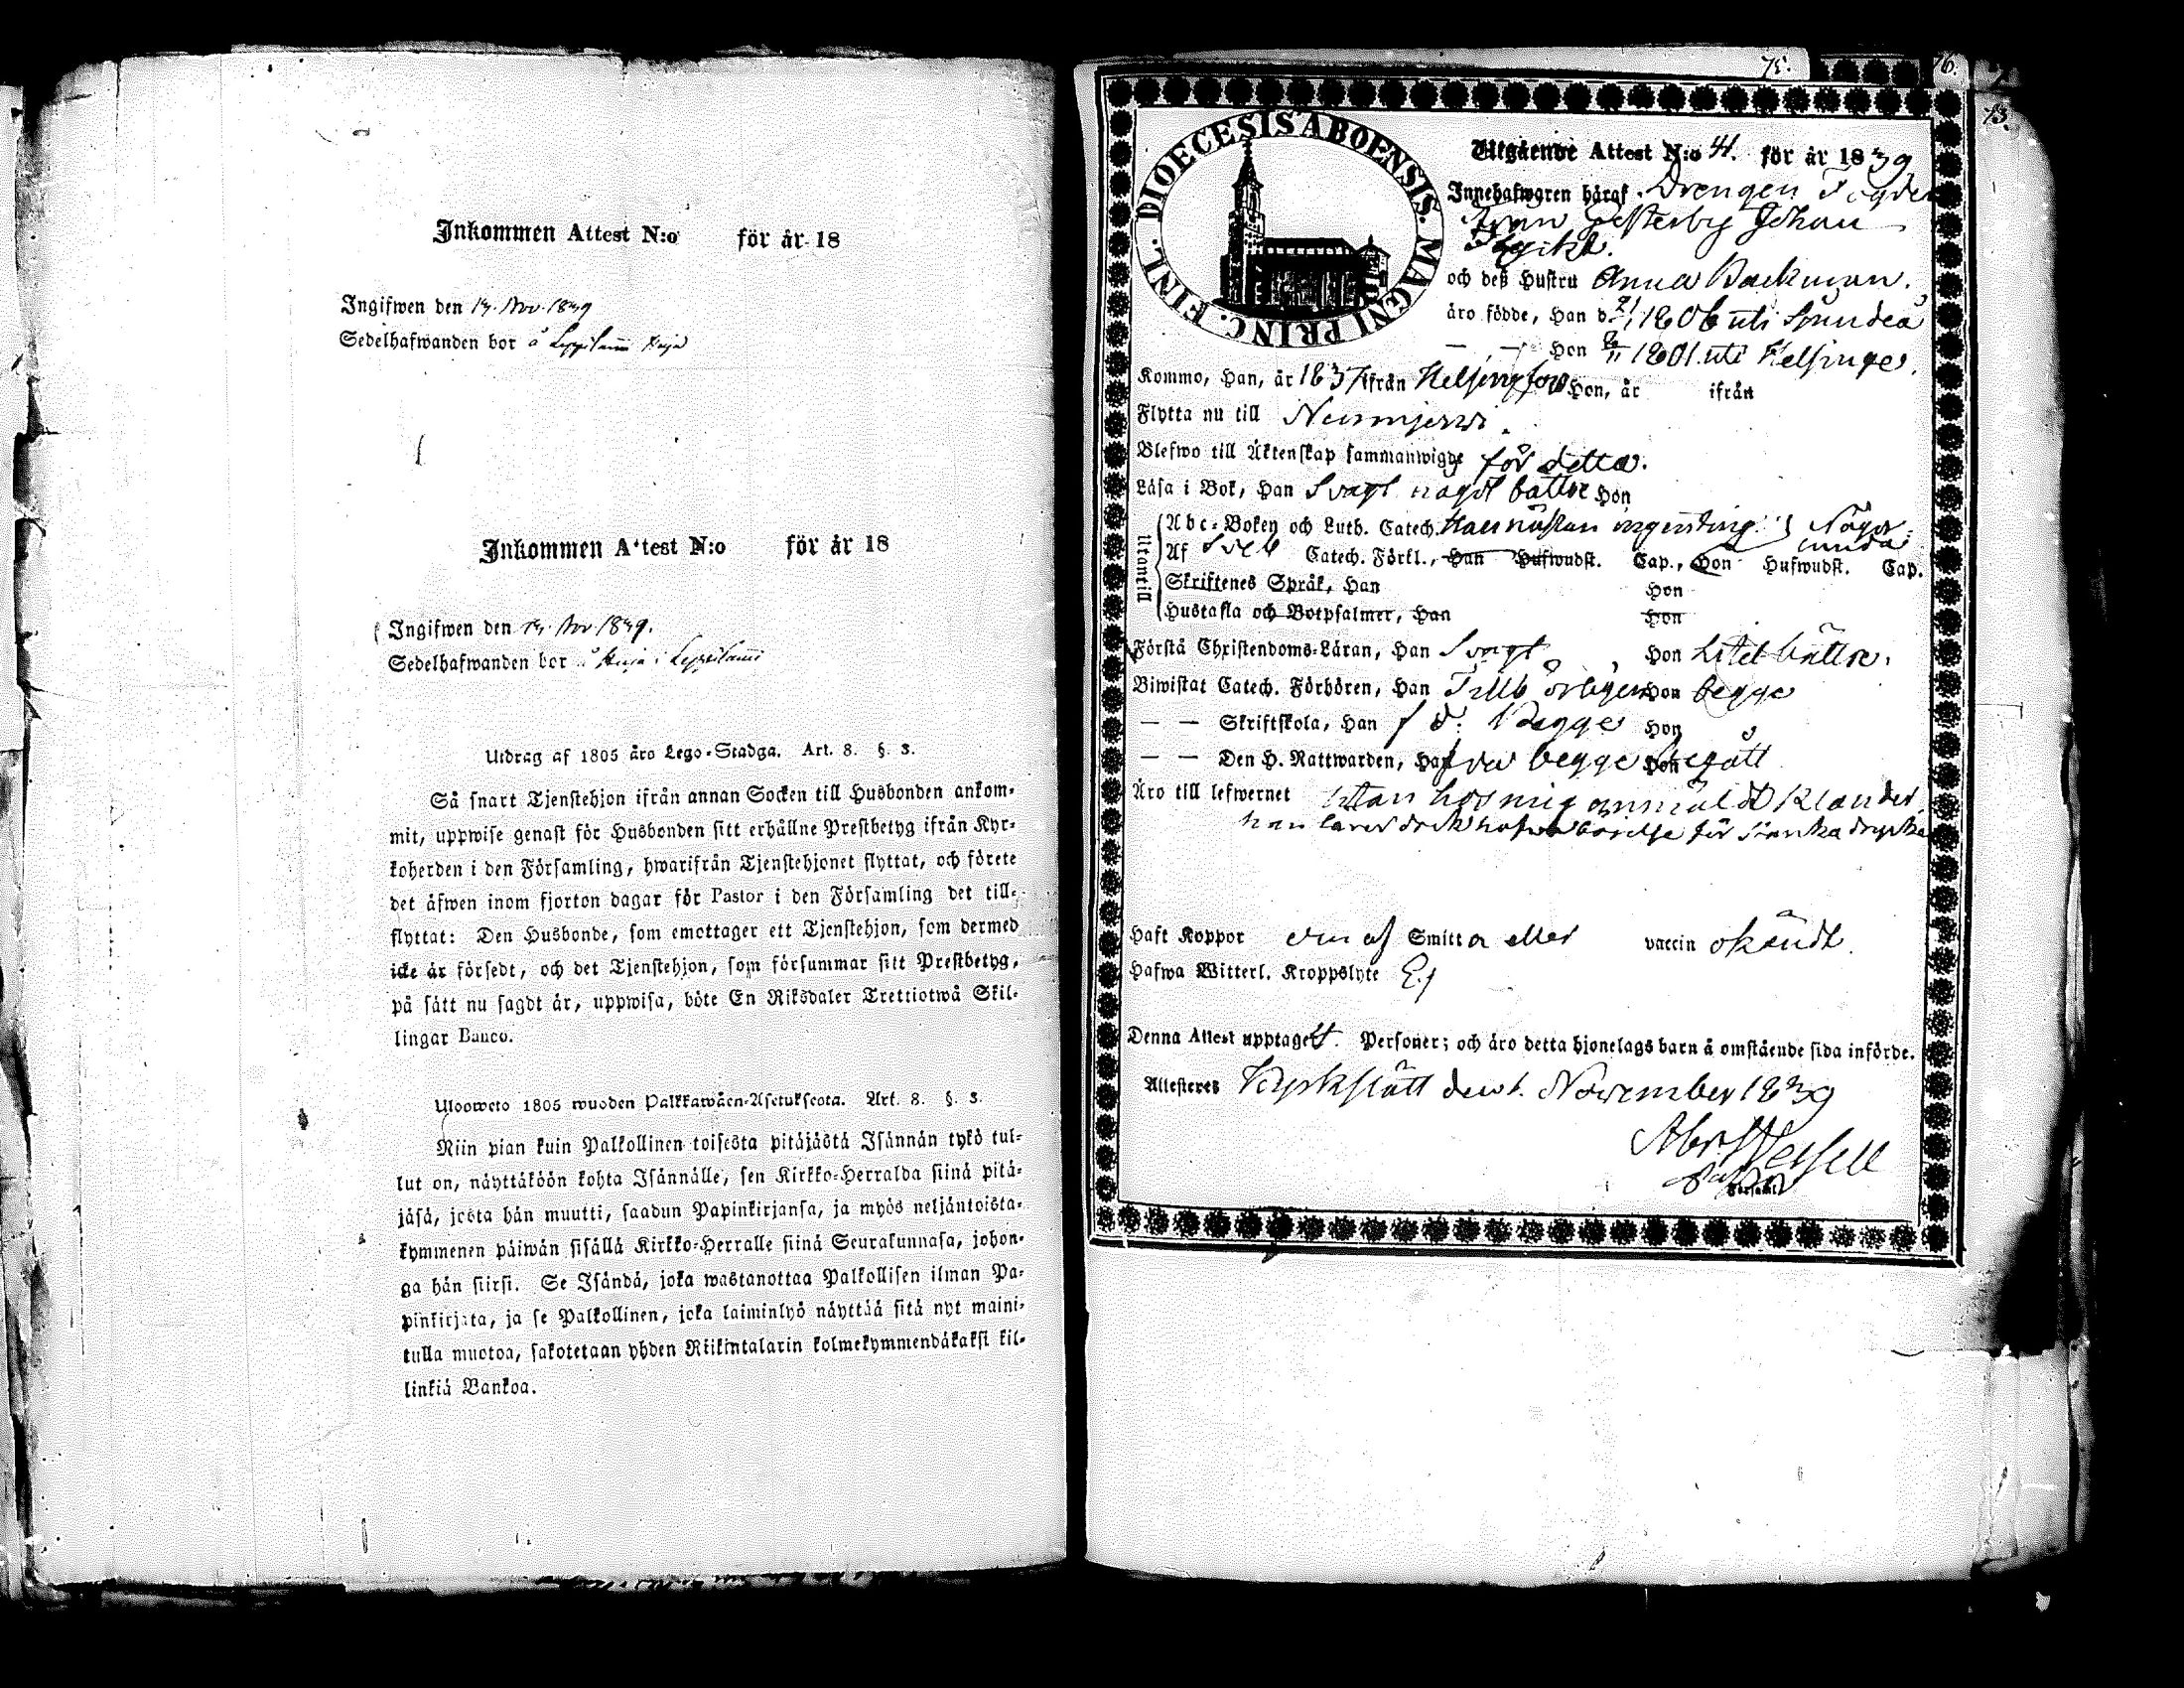 Inkommen Attest N:o för år 18
Ingifwen den 14. Nov. 1839
Sedelhafwanden bor å Leppilami
Inkommen Attest N:o för år 18
Ingifwen den 14. Nov. 1839.
Sedelhafwanden bor å i Leppilami
Utdrag af 1805 års Lego-Stadga. Art. 8. §. 3.
Så snart Tjenstehjon ifrån annan Socken till Husbonden ankom-
mit, uppwise genast för Husbonden sitt erhållne Prestbetyg ifrån Kyr-
koherden i den Församling, hwarifrån Tjenstehjonet flyttat, och förete
det äfwen inom fjorton dagar för Pastor i den Församling det till-
flyttat: Den Husbonde, som emottager ett Tjenstehjon, som dermed
icke är försedt, och det Tjenstehjon, som försummar sitt Prestbetyg,
på sätt nu sagdt är, uppwisa, böte En Riksdaler Trettiotwå Skil-
lingar Banco.
Uloosweto 1805 wuoden Palkkawäen-Asetuksesta. Art. 8. §. 3.
Niin pian kuin Palkollinen toisesta pitäjästä Isännän tykö tul-
lut on, näyttäköön kohta Isännälle, sen Kirkko-Herralda siinä pitä-
jäsä, josta hän muutti, saadun Papinkirjansa, ja myös neljäntoista-
kymmenen päiwän sisällä Kirkko-Herralle siinä Seurakunnasa, johon-
ga hän siirsi. Se Isändä, joka wastanottaa Palkollisen ilman Pa-
pinkirjata, ja se Palkollinen, joka laiminlyö näyttää sitä nyt maini-
tulla muotoa, sakotetaan yhden Riikintalarin kolmekymmendäkaksi kil-
linkiä Bankoa.
75. 76.
73.
DIOECESIS ABOENSIS. MAGNI PRINC. FINL.
Utgående Attest N:o 4. för år 1839
Innehafwaren häraf Drengen
från Gesterby Johan
och deß Hustru Anna Backman.
äro födde, Han d. 1806 uti Sjundeå
— — Hon 1801 uti Helsinge.
Kommo, Han, år 1837 ifrån Helsingfors Hon, år ifrån
Flytta nu till Nummjerwi.
Blefwo till Äktenskap sammanwigde för detta.
Läsa i Bok, Han Svagt något bättre Hon
Utantill
Abc-Boken och Luth. Catech. Han nästan ingenting. Någor-
lunda
Af Sveb Catech. Förkl., Han Hufwudst. Cap., Hon Hufwudst. Cap.
Skriftenes Språk, Han Hon
Hustafla och Botpsalmer, Han Hon
Förstå Christendoms-Läran, Han Svagt Hon Litet bättre.
Biwistat Catech. Förhören, Han Tillbörligen Hon begge
— — Skriftskola, Han f d. Begge Hon
— — Den H. Nattwarden, Han begge Hon begått
Äro till lefwernet utan hos mig anmäldt klander,
han lärer dock hafwa böjelse för starka drycker
Haft Koppor om af Smitta eller vaccin okändt.
Hafwa Witterl. Kroppslyte Ej
Denna Attest upptager 4. Personer; och äro detta hjonelags barn å omstående sida införde.
Attesteres Kyrkslätt den 1. November 1839